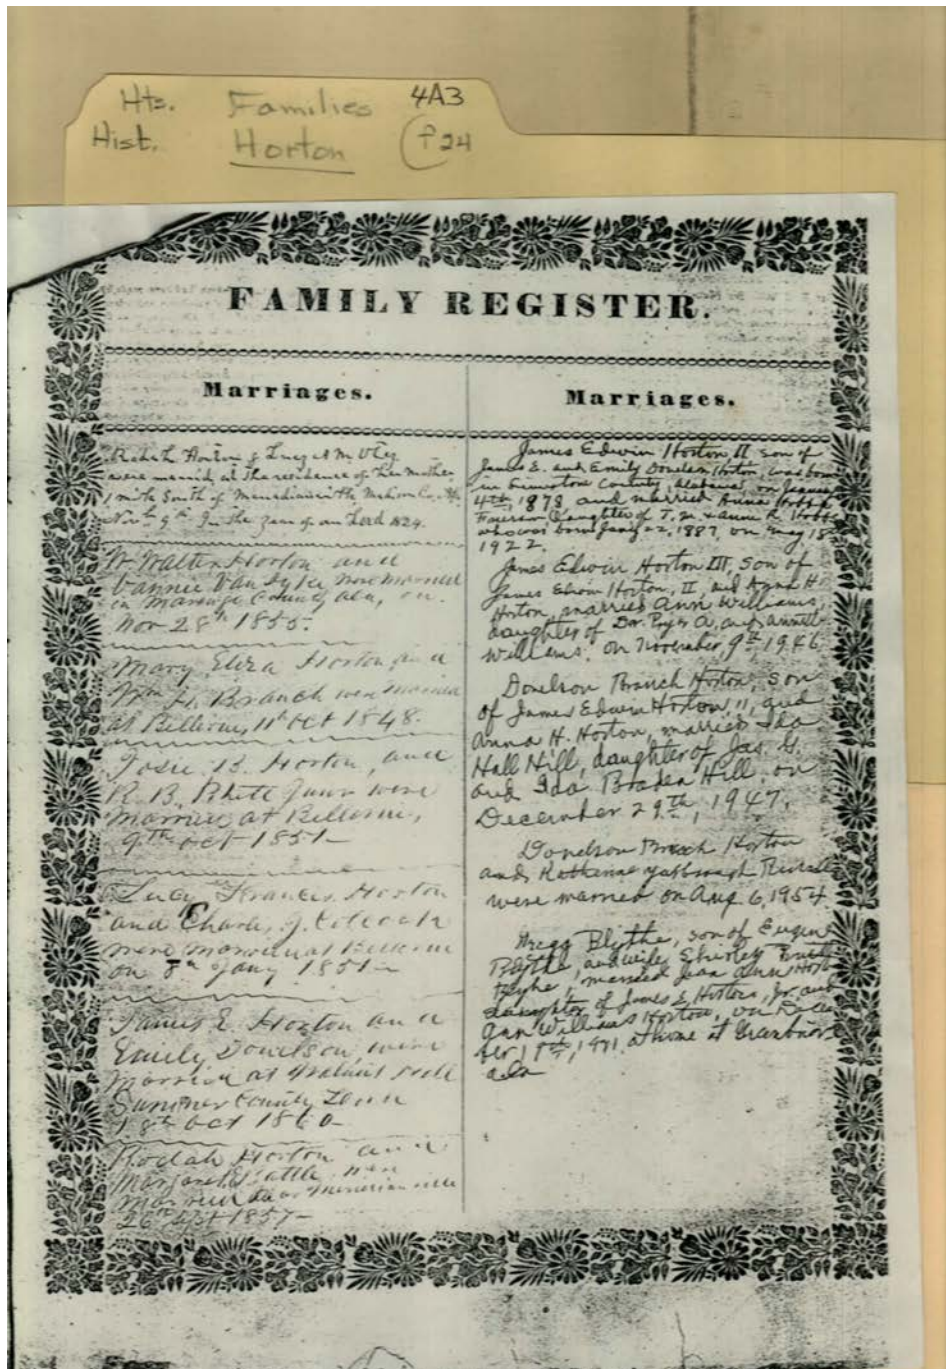 Hts. Families 4A3
Hist. Horton P24
FAMILY REGISTER.
Marriages.
Horton & Lucy A M Otey
were married at the residence of her mother
1 mile South of Meridianville Madison Co. Ala
Nov 9th In the year of our Lord 1824.
W Walter Horton and
Vannie Van Dyke were married
in Marengo County Ala, on
Nov 28th 1855.
Mary Eliza Horton and
Wm H. Branch were married
at Bellevue, 11th Oct 1848.
Josie B. Horton, and
R. B. Rhett Junr were
married at Bellevue,
9th Oct 1851
Lucy Frances Horton
and Charles J. Colcock
were married at Bellevue
on 8th Jany 1851
James E. Horton and
Emily Donelson, were
married at Walnut
Sumner County Tenn
18th Oct 1860
Rodah Horton and
Margaret Battle were
married near Meridianville
26th Sept 1857
Marriages.
James Edwin Horton II son of
James E. and Emily Donelson Horton, was born
in Limestone County, Alabama, on January
4th, 1878 and married Anna Hobbs
daughter of T. M. & Anne R. Hobbs
who was born Jany 22, 1887, on May 18
1922.
James Edwin Horton III, son of
James Edwin Horton, II, and Anna H.
Horton, married Ann Williams,
daughter of Dr. A. and
Williams. on November, 9th, 1946
Donelson Branch Horton, son
of James Edwin Horton, II, and
Anna H. Horton, married Ida
Hall Hill, daughter of Jas. G.
and Ida Braden Hill, on
December 29th, 1947.
Donelson Branch Horton
and Katherine Yarbrough
were married on Aug 6, 1954
Gregg Blythe, son of Eugene
Blythe, and wife Shirley
Blythe, married Jean Ann Horton
daughter of James E. Horton, Jr. and
Ann Williams Horton, on
1971. at home at Greenbrier
Ala